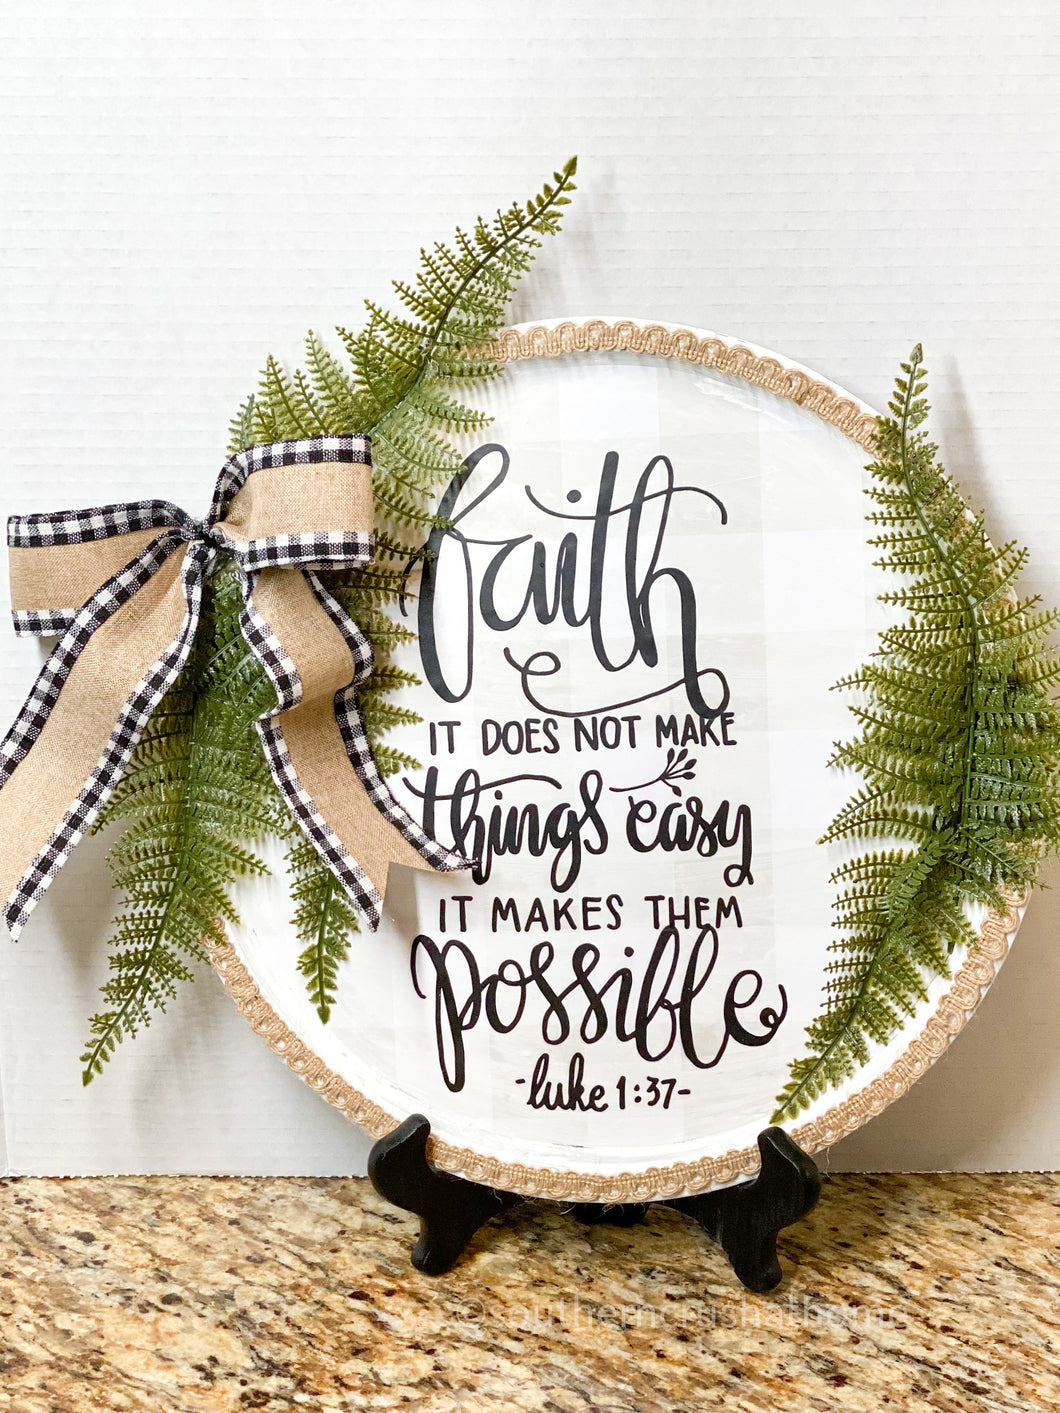 faith
IT DOES NOT MAKE
things easy
IT MAKES THEM
possible
-luke 1:37-
©southerncrushathome